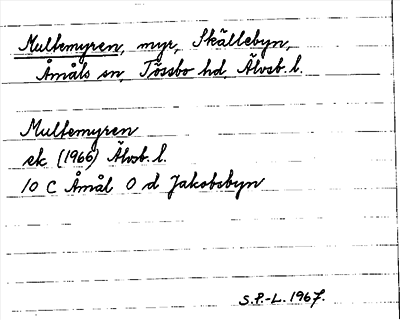 Multemyren, myr, Skällebyn,
Åmåls sn, Tössbo hd, Älvsb. l.
Multemyren
ek (1966) Älvsb. l.
10 C Åmål 0 d Jakobsbyn
S.P.-L. 1967.